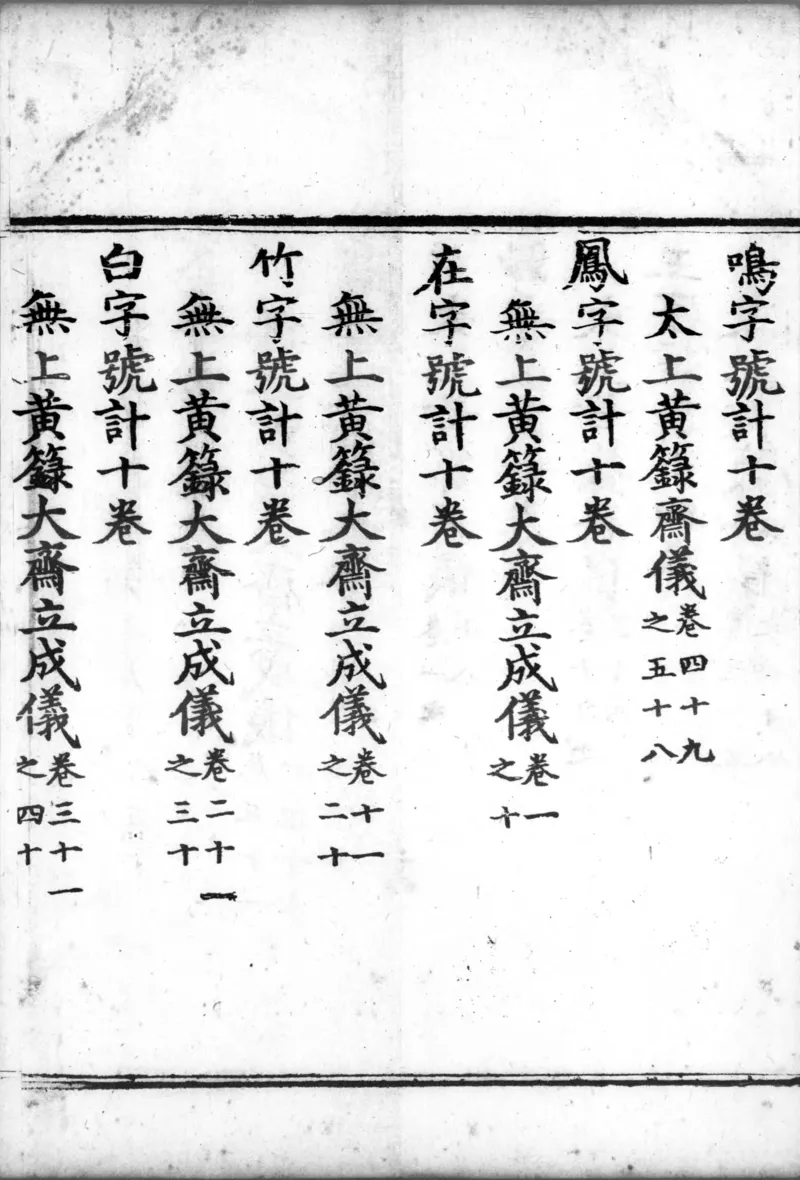 鳴字號計十卷
太上黃籙齋儀卷四十九之五十八
鳳字號計十卷
無上黃籙大齋立成儀卷一之十
在字號計十卷
無上黃籙大齋立成儀卷十一之二十
竹字號計十卷
無上黃籙大齋立成儀卷二十一之三十
白字號計十卷
無上黃籙大齋立成儀卷三十一之四十